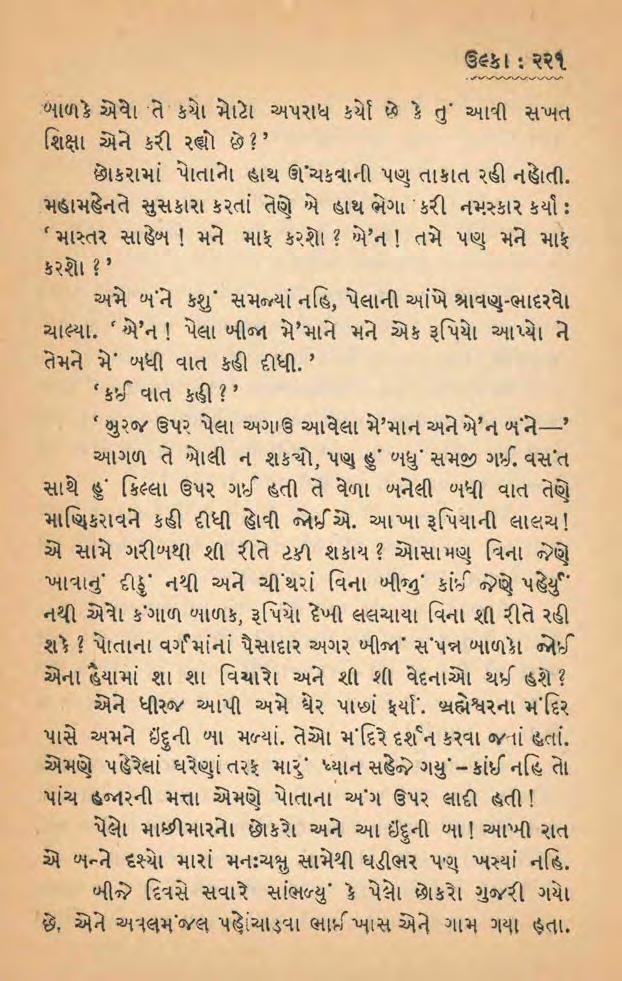 ઉલ્કા : ૨૨૧
બાળકે એવો તે કયો મોટો અપરાધ કર્યો છે કે તું આવી સખત
શિક્ષા એને કરી રહ્યો છે ?’
છોકરામાં પોતાનો હાથ ઊંચકવાની પણ તાકાત રહી નહોતી.
મહામહેનતે સુસકારા કરતાં તેણે બે હાથ ભેગા કરી નમસ્કાર કર્યાં :
‘ માસ્તર સાહેબ ! મને માફ કરશો ? બે’ન ! તમે પણ મને માફ
કરશો ? ’
અમે બંને કશું સમજ્યાં નહિ, પેલાની આંખે શ્રાવણ-ભાદરવો
ચાલ્યા. ‘ બે’ન ! પેલા બીજા મે’માને મને એક રૂપિયો આપ્યો ને
તેમને મેં બધી વાત કહી દીધી. ’
‘ કઈ વાત કહી ? ’
‘ બુરજ ઉપર પેલા અગાઉ આવેલા મે’માન અને બે’ન બંને—’
આગળ તે બોલી ન શક્યો, પણ હું બધું સમજી ગઈ. વસંત
સાથે હું કિલ્લા ઉપર ગઈ હતી તે વેળા બનેલી બધી વાત તેણે
માણિકરાવને કહી દીધી હોવી જોઈએ. આખા રૂપિયાની લાલચ !
એ સામે ગરીબથી શી રીતે ટકી શકાય ? ઓસામણ વિના જેણે
ખાવાનું દીઠું નથી અને ચીંથરાં વિના બીજું કાંઈ જેણે પહેર્યું
નથી એવો કંગાળ બાળક, રૂપિયો દેખી લલચાયા વિના શી રીતે રહી
શકે ? પોતાના વર્ગમાંનાં પૈસાદાર અગર બીજાં સંપન્ન બાળકો જોઈ
એના હૈયામાં શા શા વિચારો અને શી શી વેદનાઓ થઈ હશે ?
એને ધીરજ આપી અમે ઘેર પાછાં ફર્યાં. બ્રહ્મેશ્વરના મંદિર
પાસે અમને ઇંદુની બા મળ્યાં. તેઓ મંદિરે દર્શન કરવા જતાં હતાં.
એમણે પહેરેલાં ઘરેણાં તરફ મારું ધ્યાન સહેજે ગયું – કાંઈ નહિ તો
પાંચ હજારની મત્તા એમણે પોતાના અંગ ઉપર લાદી હતી !
પેલો માછીમારનો છોકરો અને આ ઇંદુની બા ! આખી રાત
એ બન્ને દશ્યો મારાં મનઃચક્ષુ સામેથી ઘડીભર પણ ખસ્યાં નહિ.
બીજે દિવસે સવારે સાંભળ્યું કે પેલો છોકરો ગુજરી ગયો
છે. એને અવલમંજલ પહોંચાડવા ભાઈ ખાસ એને ગામ ગયા હતા.